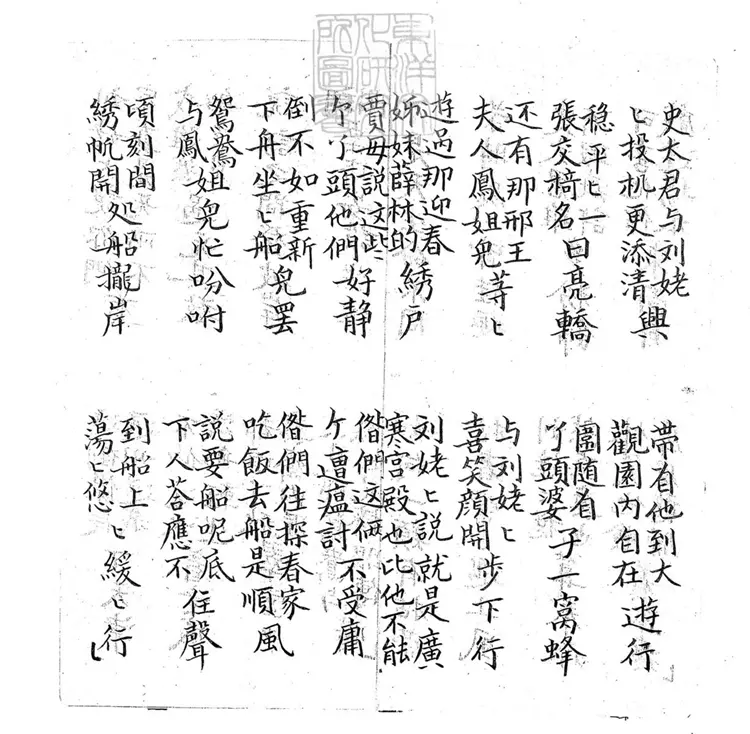 史太君与刘姥ヒ投机更添清興
带有他到大觀園内自在遊行
稳平ヒ一張交椅名曰亮轎
圍随有丫頭婆子一窩蜂
还有那邢王夫人鳳姐兒等ヒ
与刘姥ヒ喜笑顔開步下行
遊过那迎春姊妹薛林的綉户
刘姥ヒ説就是廣寒宫殿也比他不能
賈母説这些个丫頭他們好静
偺們这俩个遭瘟討不受庸
倒不如重新下舟坐ヒ船兒罢
偺們往探春家吃飯去船是順風
鴛鴦与鳳姐兒忙吩咐
説要船呢底下人荅應不住聲
頃刻間綉帆開处船攏岸
到船上蕩ヒ悠ヒ緩ヒ行